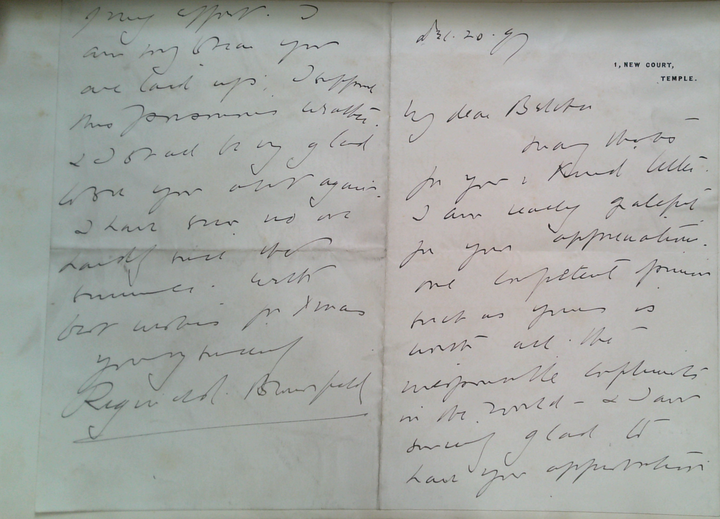 Dec. 20. 97
1, NEW COURT,
TEMPLE.
My dear Belcher
many thanks
for your kind letter.
I am really grateful
for your appreciation.
one competent opinion
such as yours is
worth all the
irresponsible compliments
in the world - & I am
sincerely glad to
have your approbation
of my effort. I
am sorry to hear you
are laid up. I suppose
this poisonous weather.
& I shall be very glad
to see you about again.
I have seen no one
hardly since the
summer. with
best wishes for Xmas
yours sincerely
Reginald Blomfield